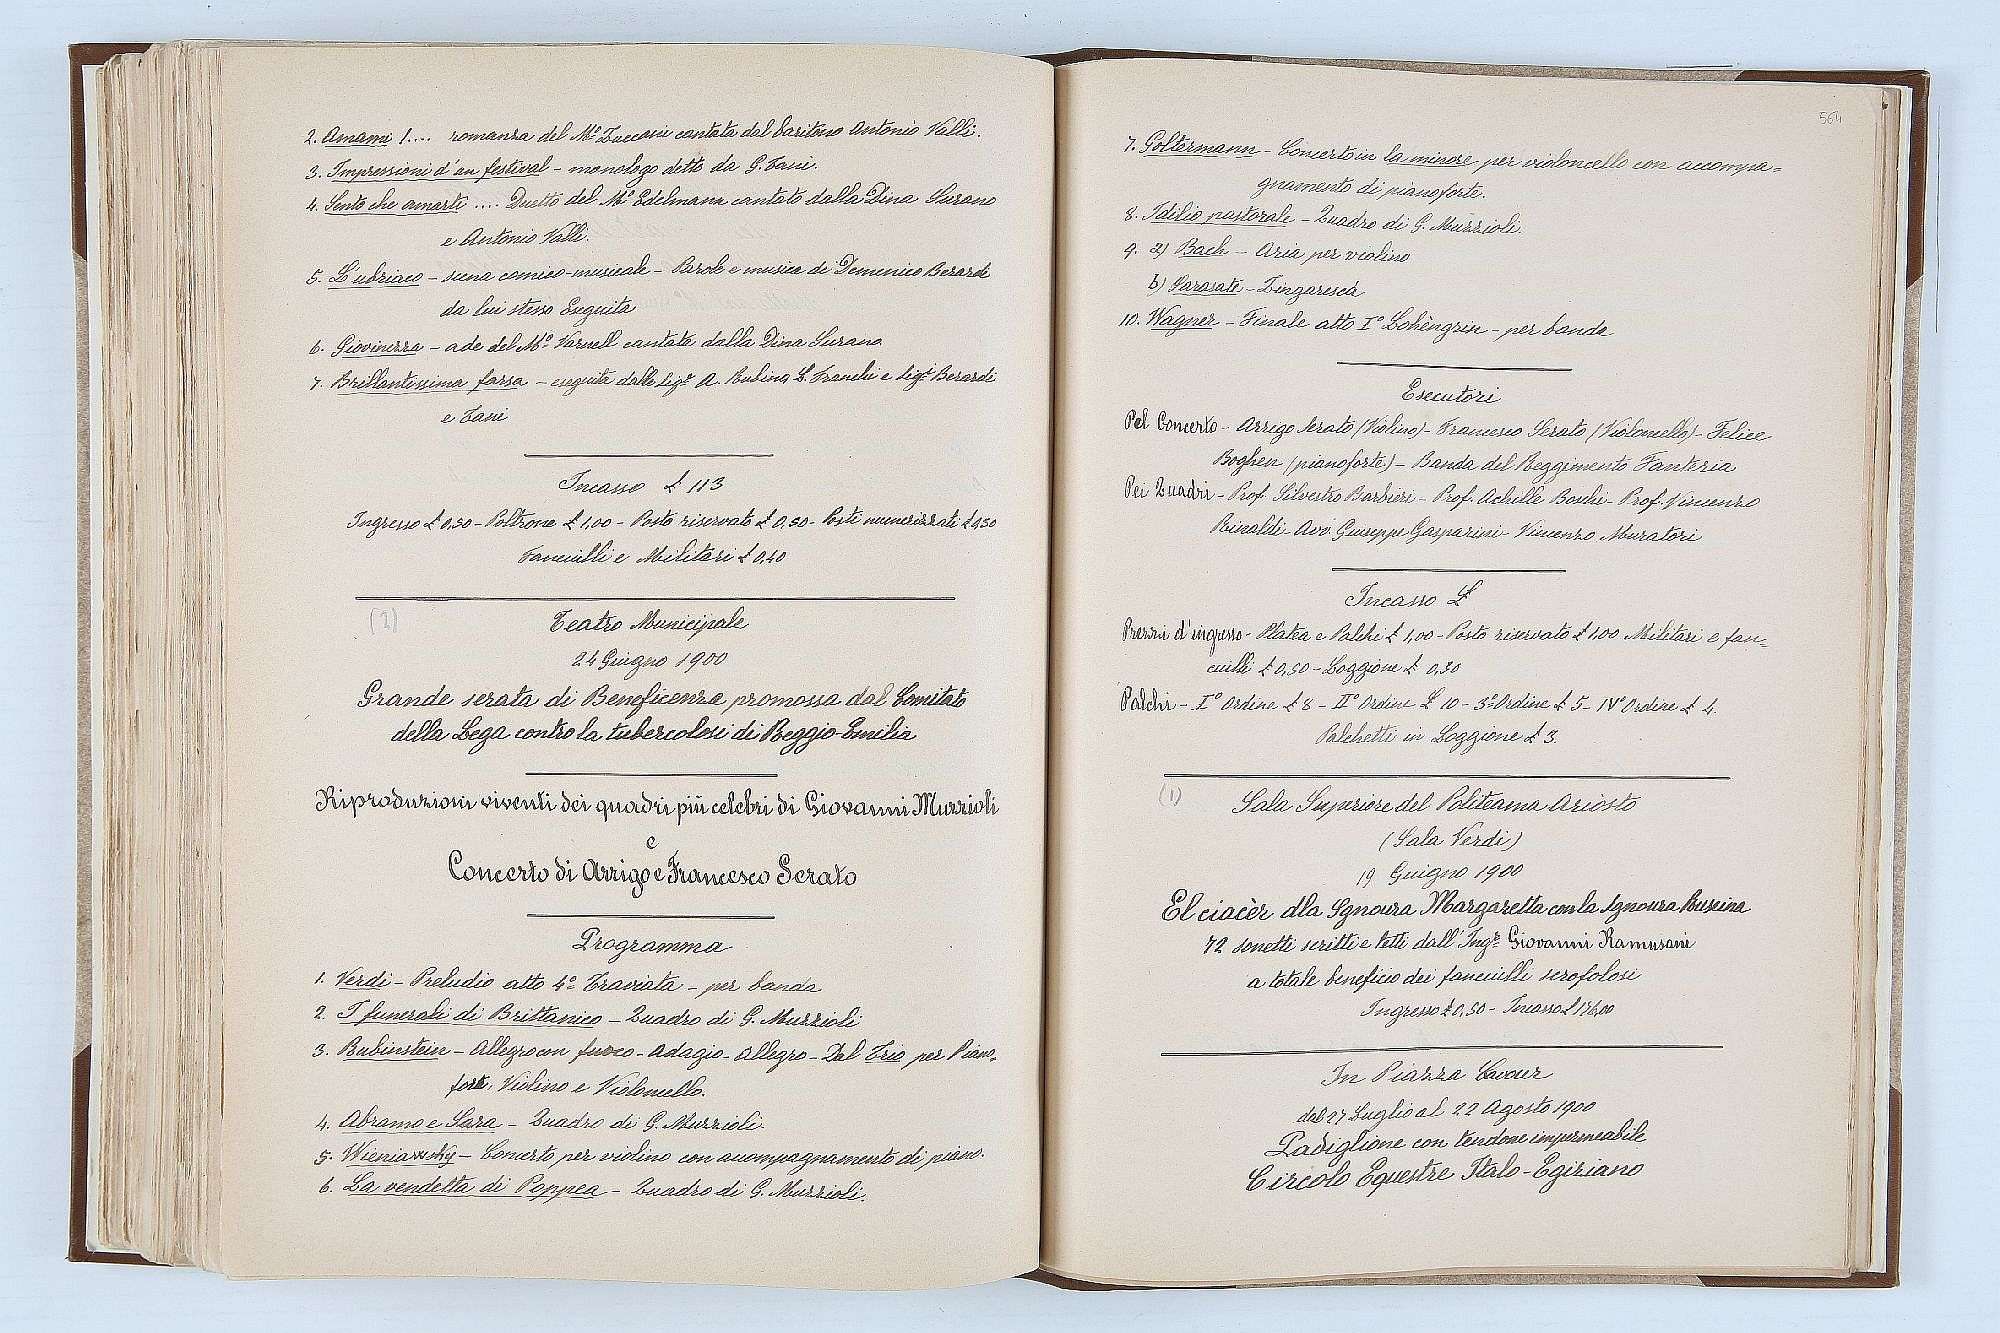 2. Amami !.... romanza del Mo Zuccani cantata dal baritono Antonio Valli.
3. Impressioni d'un festival - monologo detto da G. Fani.
4. Sento che amarti .... Duetto del Mo Edelmann cantato dalla Dina Surano
e Antonio Valli.
5. L'ubriaco - scena comico-musicale - Parole e musica di Domenico Berardi
da lui stesso Eseguita
6. Giovinezza - ade del Mo Varnell cantata dalla Dina Surano
7. Brillantissima farsa - eseguita dalle sigre A. Rubing L. Franchi e sigri Berardi
e Fani
Incasso £ 113
Ingresso £ 0,50 - Poltrone £ 1,00 - Posto riservato £ 0,50 - Posti numerizzati £ 0,50
Fanciulli e Militari £ 0,40
(2)
Teatro Municipale
24 Giugno 1900
Grande serata di Beneficenza promossa dal Comitato
della Lega contro la tubercolosi di Reggio-Emilia
Riproduzioni viventi dei quadri più celebri di Giovanni Muzzioli
e
Concerto di Arrigo e Francesco Serato
Programma
1. Verdi - Preludio atto 4o Traviata - per banda
2. I funerali di Brittanico - Quadro di G. Muzzioli
3. Rubinstein - Allegro con fuoco - Adagio - Allegro - Dal Trio per Piano-
forte, Violino e Violoncello.
4. Abramo e Sara - Quadro di G. Muzzioli.
5. Wieniawsky - Concerto per violino con accompagnamento di piano.
6. La vendetta di Poppea - Quadro di G. Muzzioli.
564
7. Goltermann - Concerto in la minore per violoncello con accompa=
gnamento di pianoforte.
8. Idilio pastorale - Quadro di G. Muzzioli.
9. a) Bach - Aria per violino
b) Sarasate - Zingaresca
10. Wagner - Finale atto Io Lohèngrin - per banda
Esecutori
Pel Concerto - Arrigo Serato (Violino) - Francesco Serato (Violoncello) - Felice
Boghen (pianoforte) - Banda del Reggimento Fanteria
Pei Quadri - Prof. Silvestro Barbieri - Prof. Achille Boschi - Prof. Vincenzo
Rinaldi - Avv Giuseppe Gasparini - Vincenzo Muratori
Incasso £
Prezzi d'ingresso - Platea e Palchi £ 1,00 - Posto riservato £ 1,00 Militari e fan-
ciulli £ 0,50 - Loggione £ 0,30
Palchi - Io Ordine £ 8 - IIo Ordine £ 10 - 3o Ordine £ 5 - IVo Ordine £ 4.
Palchetti in Loggione £ 3.
(1)
Sala Superiore del Politeama Ariosto
(Sala Verdi)
19 Giugno 1900
El ciacèr dla Sgnoura Margaretta con la sgnoura Ruseina
72 sonetti scritti e letti dall'Ingre Giovanni Ramusani
a totale beneficio dei fanciulli scrofolosi
Ingresso £ 0,50 - Incasso £ 176,00
In Piazza Cavour
dal 27 Luglio al 22 Agosto 1900
Padiglione con tendone impermeabile
Circolo Equestre Italo-Egiziano